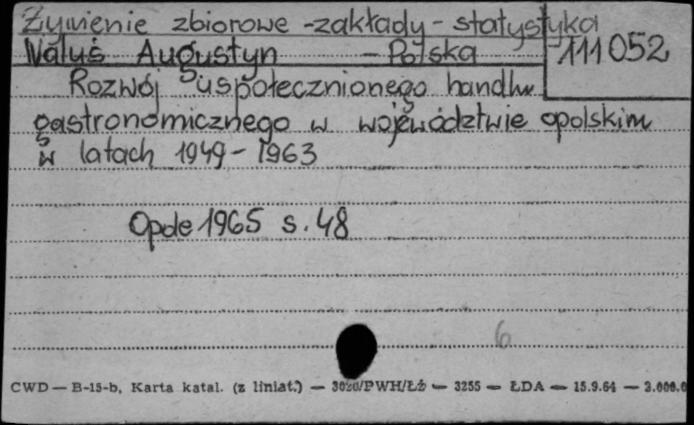 Żywienie zbiorowe - zakłady - statystyka
Waluś Augustyn - Polska
111052
Rozwój uspołecznionego handlu
gastronomicznego w województwie opolskim
w latach 1949-1963
Opole 1965 s. 48
6
CWD — B-15-b, Karta katal. (z liniat.) — 3020/PWH/Łż — 3255 — ŁDA — 15.9.64 — 2.000.0